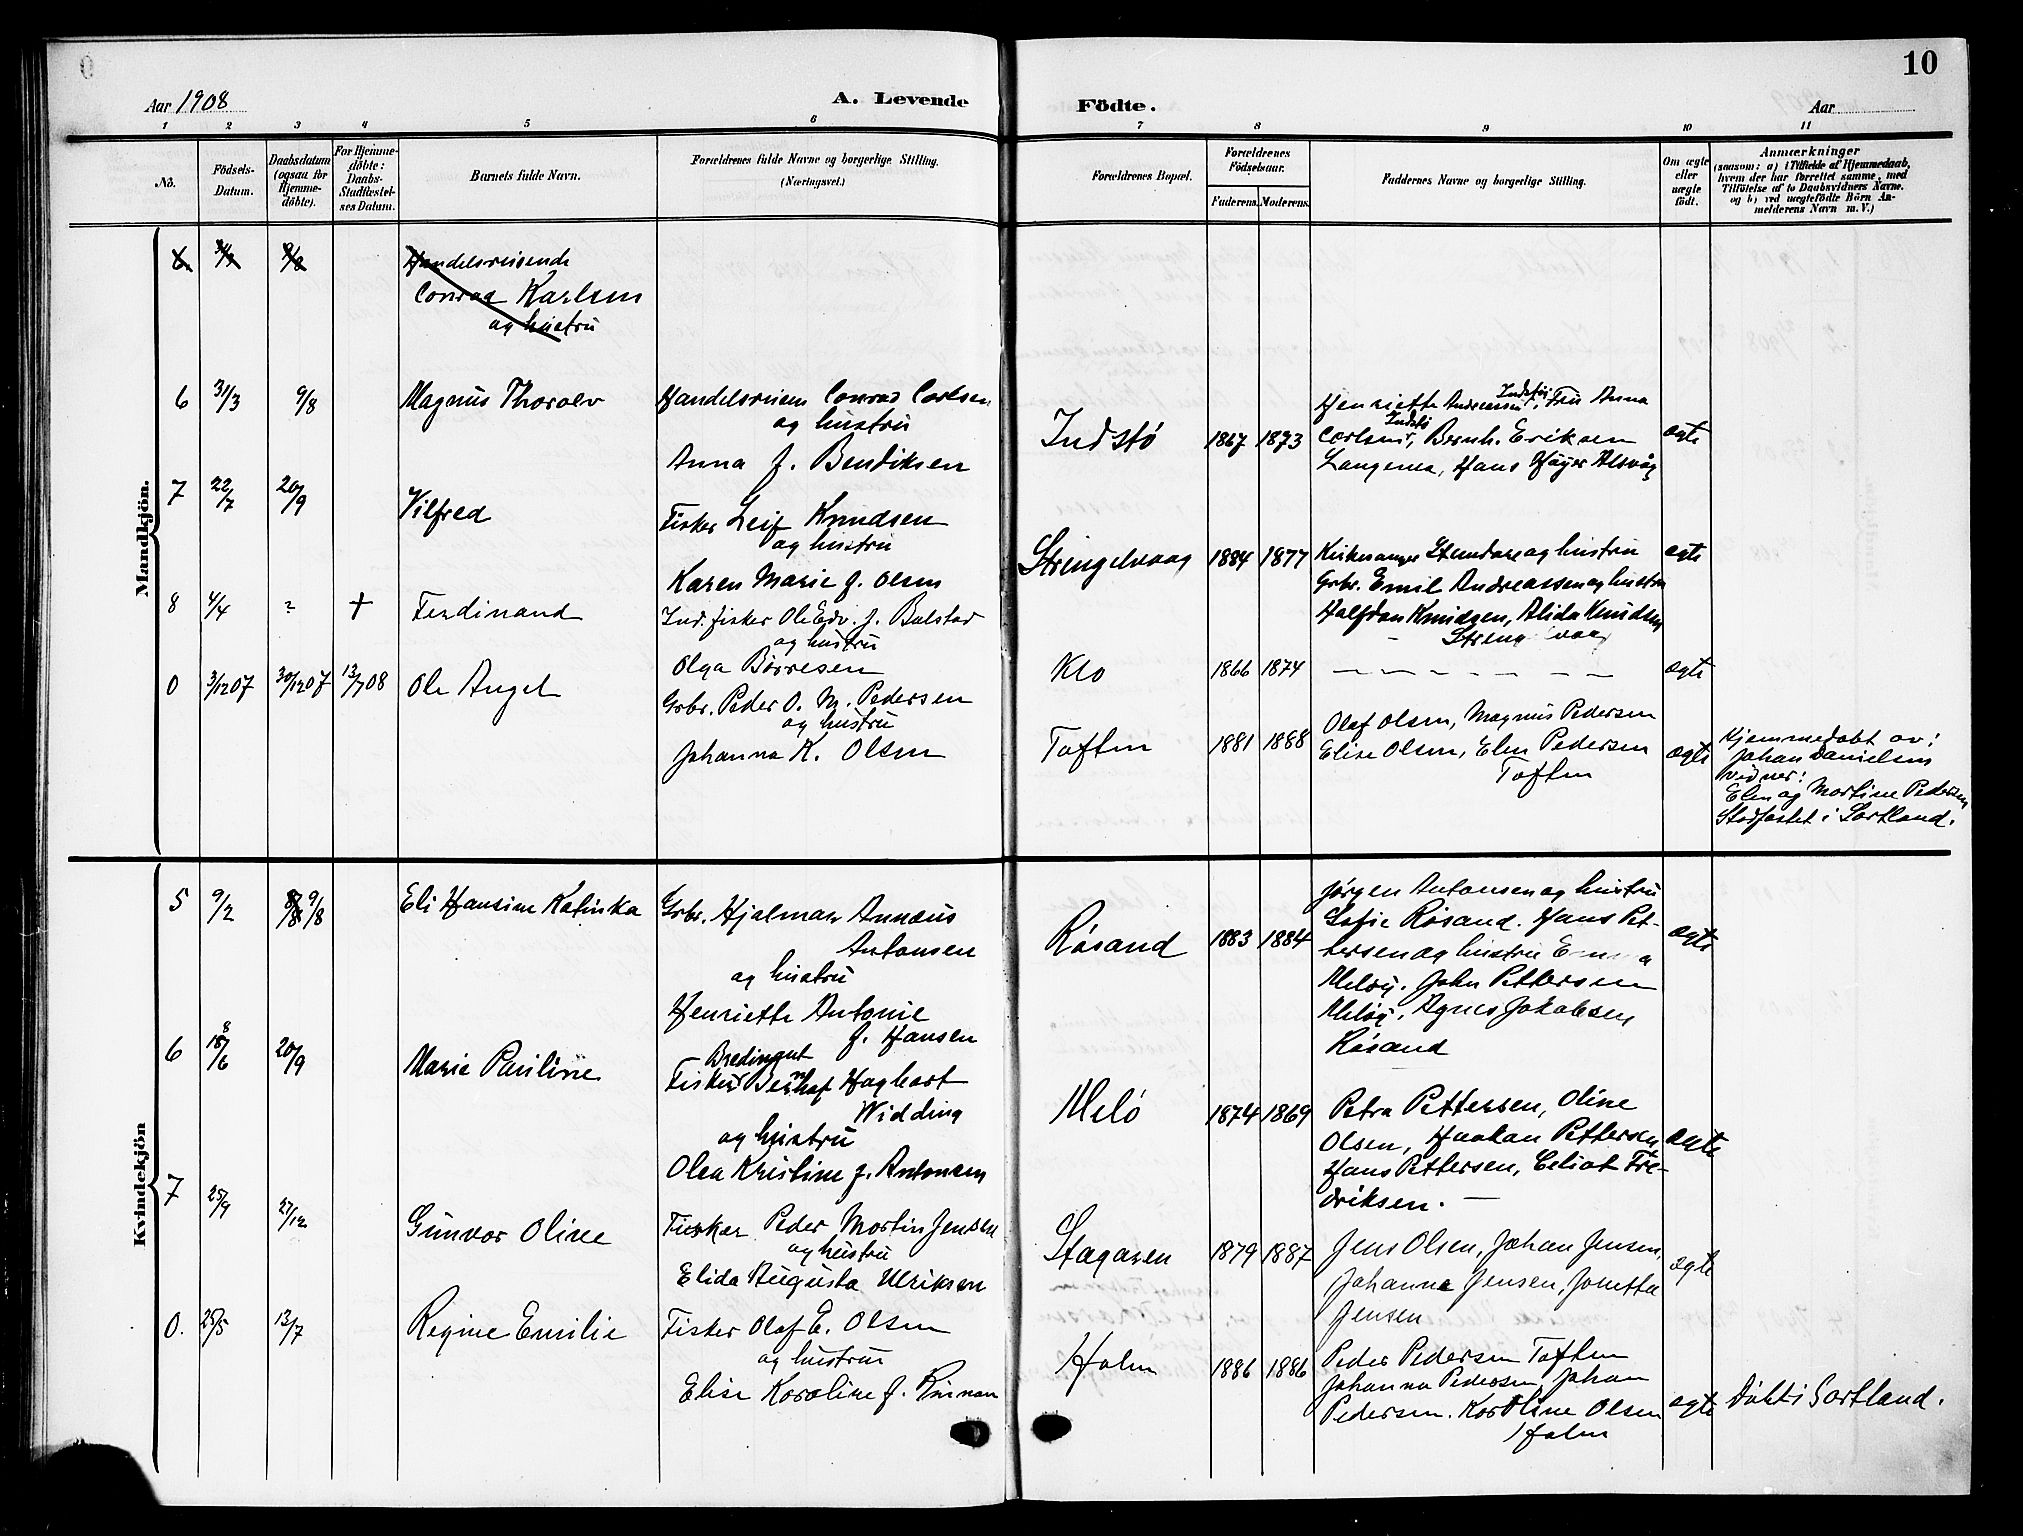 10
Aar 1908
A. Levende
Födte.
Aar
1 2 3 4 5 6 7 8 9 10 11
No.
Födsels-Datum.
Daabsdatum (ogsaa for Hjemmedöbte).
For Hjemmedöbte: Daabs-Stadfæstelses Datum.
Barnets fulde Navn.
Forældrenes fulde Navne og borgerlige Stilling.
(Næringsvei.)
Forældrenes Bopæl.
Forældrenes Födselsaar.
Faderens. Moderens.
Faddernes Navne og borgerlige Stilling.
Om ægte eller uægte födt.
Anmærkninger
(saasom: a) i Tilfælde af Hjemmedaab,
hvem der har forrettet samme, med
Tilföielse af to Daabsvidners Navne.
og b) ved uægtefödte Börn An-
melderens Navn m. V.)
Mandkjön.
Handelsreisende
Conrad Karlsen
og hustru
6 31/3 9/8 Magnus Thoralv
Handelsreisen Conrad Carlsen
og hustru
Anna f. Bendiksen
Indstø 1867 1873
Henriette Andreassen Indstø, Fru Anna
Carlsen Indstø, Bernh. Eriksen
Langenes, Hans Høyer Alsvåg
ægte
7 22/7 20/9 Vilfred
Fisker Leif Knudsen
og hustru
Karen Marie f. Olsen
Strengelvaag 1884 1877
Kirkesanger Stendare og hustru
Grbr. Emil Andreassen og hustru
Halfdan Knudsen, Alida Knudsen
ægte
8 4/4 ? + Ferdinand
Ind. fisker Ole Edv. J. Bulstad
og hustru
Olga Børresen
Klo 1866 1874 — — — — — — — ægte
0 3/12 07 30/12 07 13/7 08 Ole Angel
Grbr. Peder O. M. Pedersen
og hustru
Johanna K. Olsen
Toften 1881 1888
Olaf Olsen, Magnus Pedersen
Elise Olsen, Elen Pedersen
Toften
ægte
Hjemmedøbt av:
Johan Danielsen
vidner:
Elen og Martine Pedersen
Stadfæstet i Sortland.
Kvindekjön
5 9/2 9/8 Eli Hansine Katinka
Grbr. Hjalmar Annæus
Antonsen
og hustru
Henriette Antonie
f. Hansen
Røsand 1883 1884
Jørgen Antonsen og hustru
Sofie Røsand. Hans Pet-
tersen og hustru
Meløy. John Pettersen
Meløy. Agnes Jakobsen
Røsand
ægte
6 18/6 20/9 Marie Pauline
Bredingut
Fisker Bernhof Hagbart
Widding
og hustru
Olea Kristine f. Antonsen
Melö 1874 1869
Petra Pettersen, Oline
Olsen, Haakan Pettersen
Hans Pettersen, Eeliat Fre-
driksen. —
ægte
7 25/9 27/12 Gunvor Oline
Fisker Peder Martin Jensen
og hustru
Elida Augusta Ulriksen
Stagaren 1879 1887
Jens Olsen, Johan Jensen,
Johanna Jensen, Jonetta
Jensen
ægte
0. 25/5 13/7 Regine Emilie
Fisker Olaf E. Olsen
og hustru
Elise Karoline f. Rinnan
Holm 1886 1886
Peder Pedersen Toften
Johanna Pedersen, Johan
Pedersen. Karoline Olsen
Holm
ægte
Døbt i Sortland.